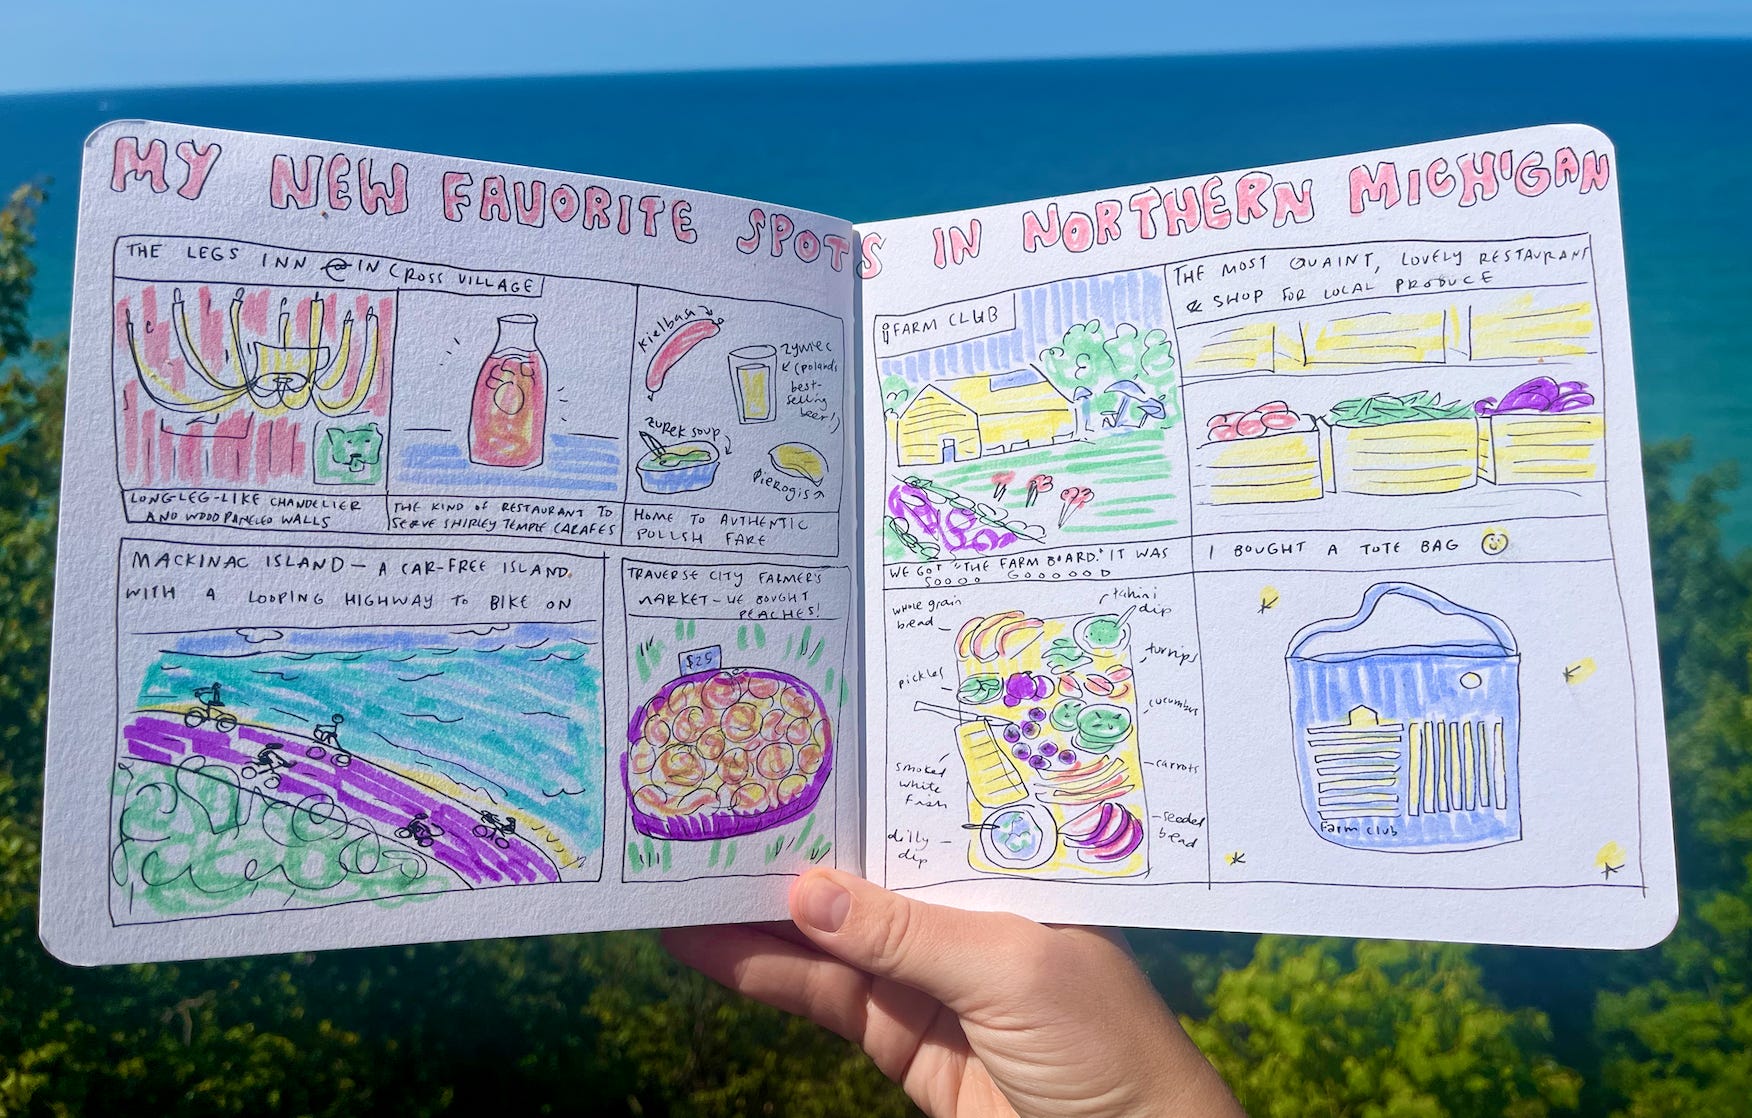 MY NEW FAVORITE SPOTS IN NORTHERN MICHIGAN
THE LEGS INN @ IN CROSS VILLAGE
LONG-LEG-LIKE CHANDELIER
AND WOOD PANELED WALLS
THE KIND OF RESTAURANT TO
SERVE SHIRLEY TEMPLE CARAFES
Kielbasa
ZYWIEC
(Poland's
best-
selling
beer!)
ZUREK SOUP
Pierogis
HOME TO AUTHENTIC
POLISH FARE
MACKINAC ISLAND — A CAR-FREE ISLAND
WITH A LOOPING HIGHWAY TO BIKE ON
TRAVERSE CITY FARMER'S
MARKET — WE BOUGHT
PEACHES!
$25
FARM CLUB
THE MOST QUAINT, LOVELY RESTAURANT
& SHOP FOR LOCAL PRODUCE
WE GOT "THE FARM BOARD." IT WAS
SOOOO GOOOOOD
whole grain
bread
tahini
dip
turnips
pickles
cucumber
smoked
white
fish
carrots
dilly
dip
seeded
bread
I BOUGHT A TOTE BAG
Farm club